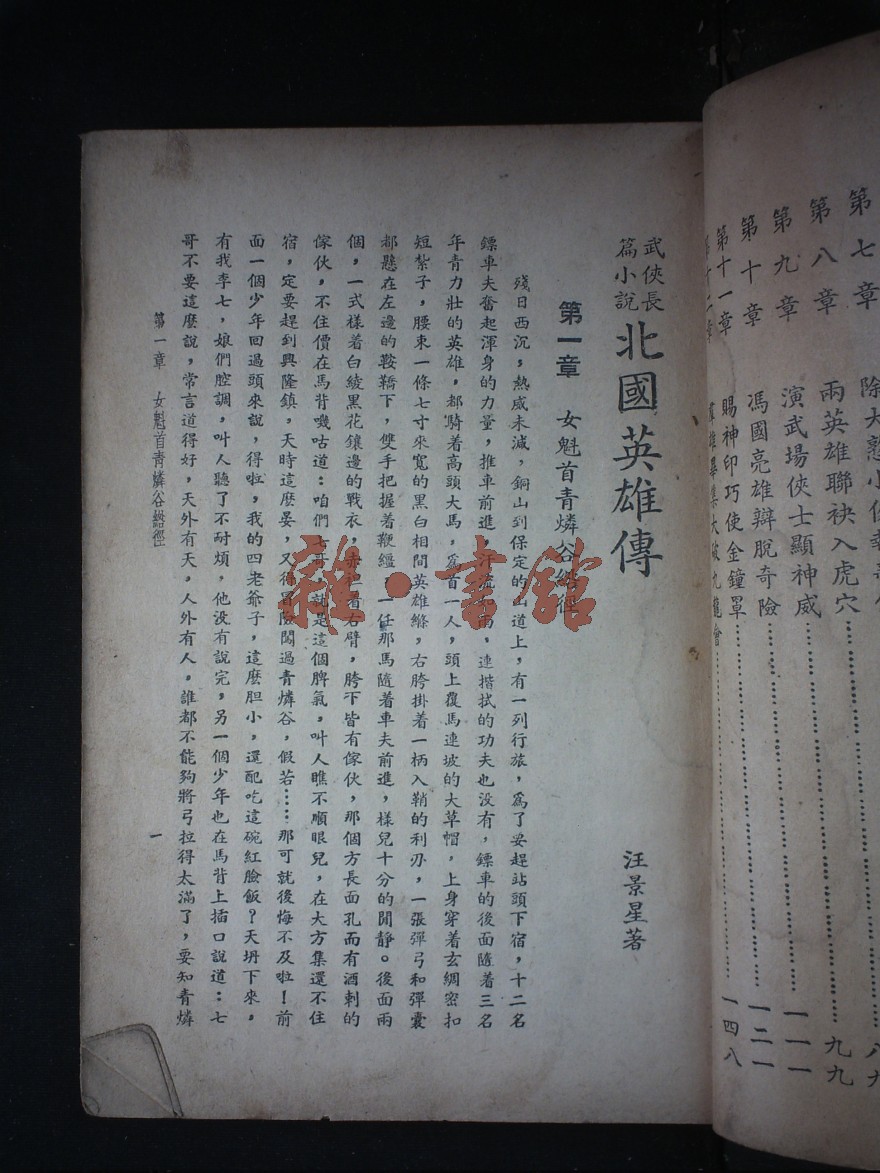 第七章
第八章 兩英雄聯袂入虎穴 九九
第九章 演武場俠士顯神威 一一一
第十章 馮國亮雄辯脫奇險 一二一
第十一章 賜神印巧使金鐘罩 一四八
武俠長篇小說 北國英雄傳
汪景星著
第一章 女魁首青燐谷
殘日西沉，熱威未減，銅山到保定的山道上，有一列行旅，爲了要趕站頭下宿，十二名
鏢車夫奮起渾身的力量，推車前進，汗流如雨，連揩拭的功夫也没有，鏢車的後面隨着三名
年青力壯的英雄，都騎着高頭大馬，爲首一人，頭上覆馬連坡的大草帽，上身穿着玄綢密扣
短紮子，腰束一條七寸來寬的黑白相間英雄縧，右胯掛着一柄入鞘的利刃，一張彈弓和彈囊
都懸在左邊的鞍鞽下，雙手把握着鞭繮，一任那馬隨着車夫前進，樣兒十分的閒靜。後面兩
個，一式樣着白綾黑花鑲邊的戰衣，着右臂，胯下皆有傢伙，那個方長面孔而有酒刺的
傢伙，不住價在馬背嘰咕道：咱們七哥就是這個脾氣，叫人瞧不順眼兒，在大方集還不住
宿，定要趕到興隆鎮，天時這麽晏，又得冒險闖過青燐谷，假若……那可就後悔不及啦！前
面一個少年回過頭來說，得啦，我的四老爺子，這麽胆小，還配吃這碗紅臉飯？天坍下來，
有我李七，娘們腔調，叫人聽了不耐煩，他没有說完，另一個少年也在馬背上插口說道：七
哥不要這麽說，常言道得好，天外有天，人外有人，誰都不能夠將弓拉得太滿了，要知青燐
第一章 女魁首青燐谷 徑
一
雜·書館